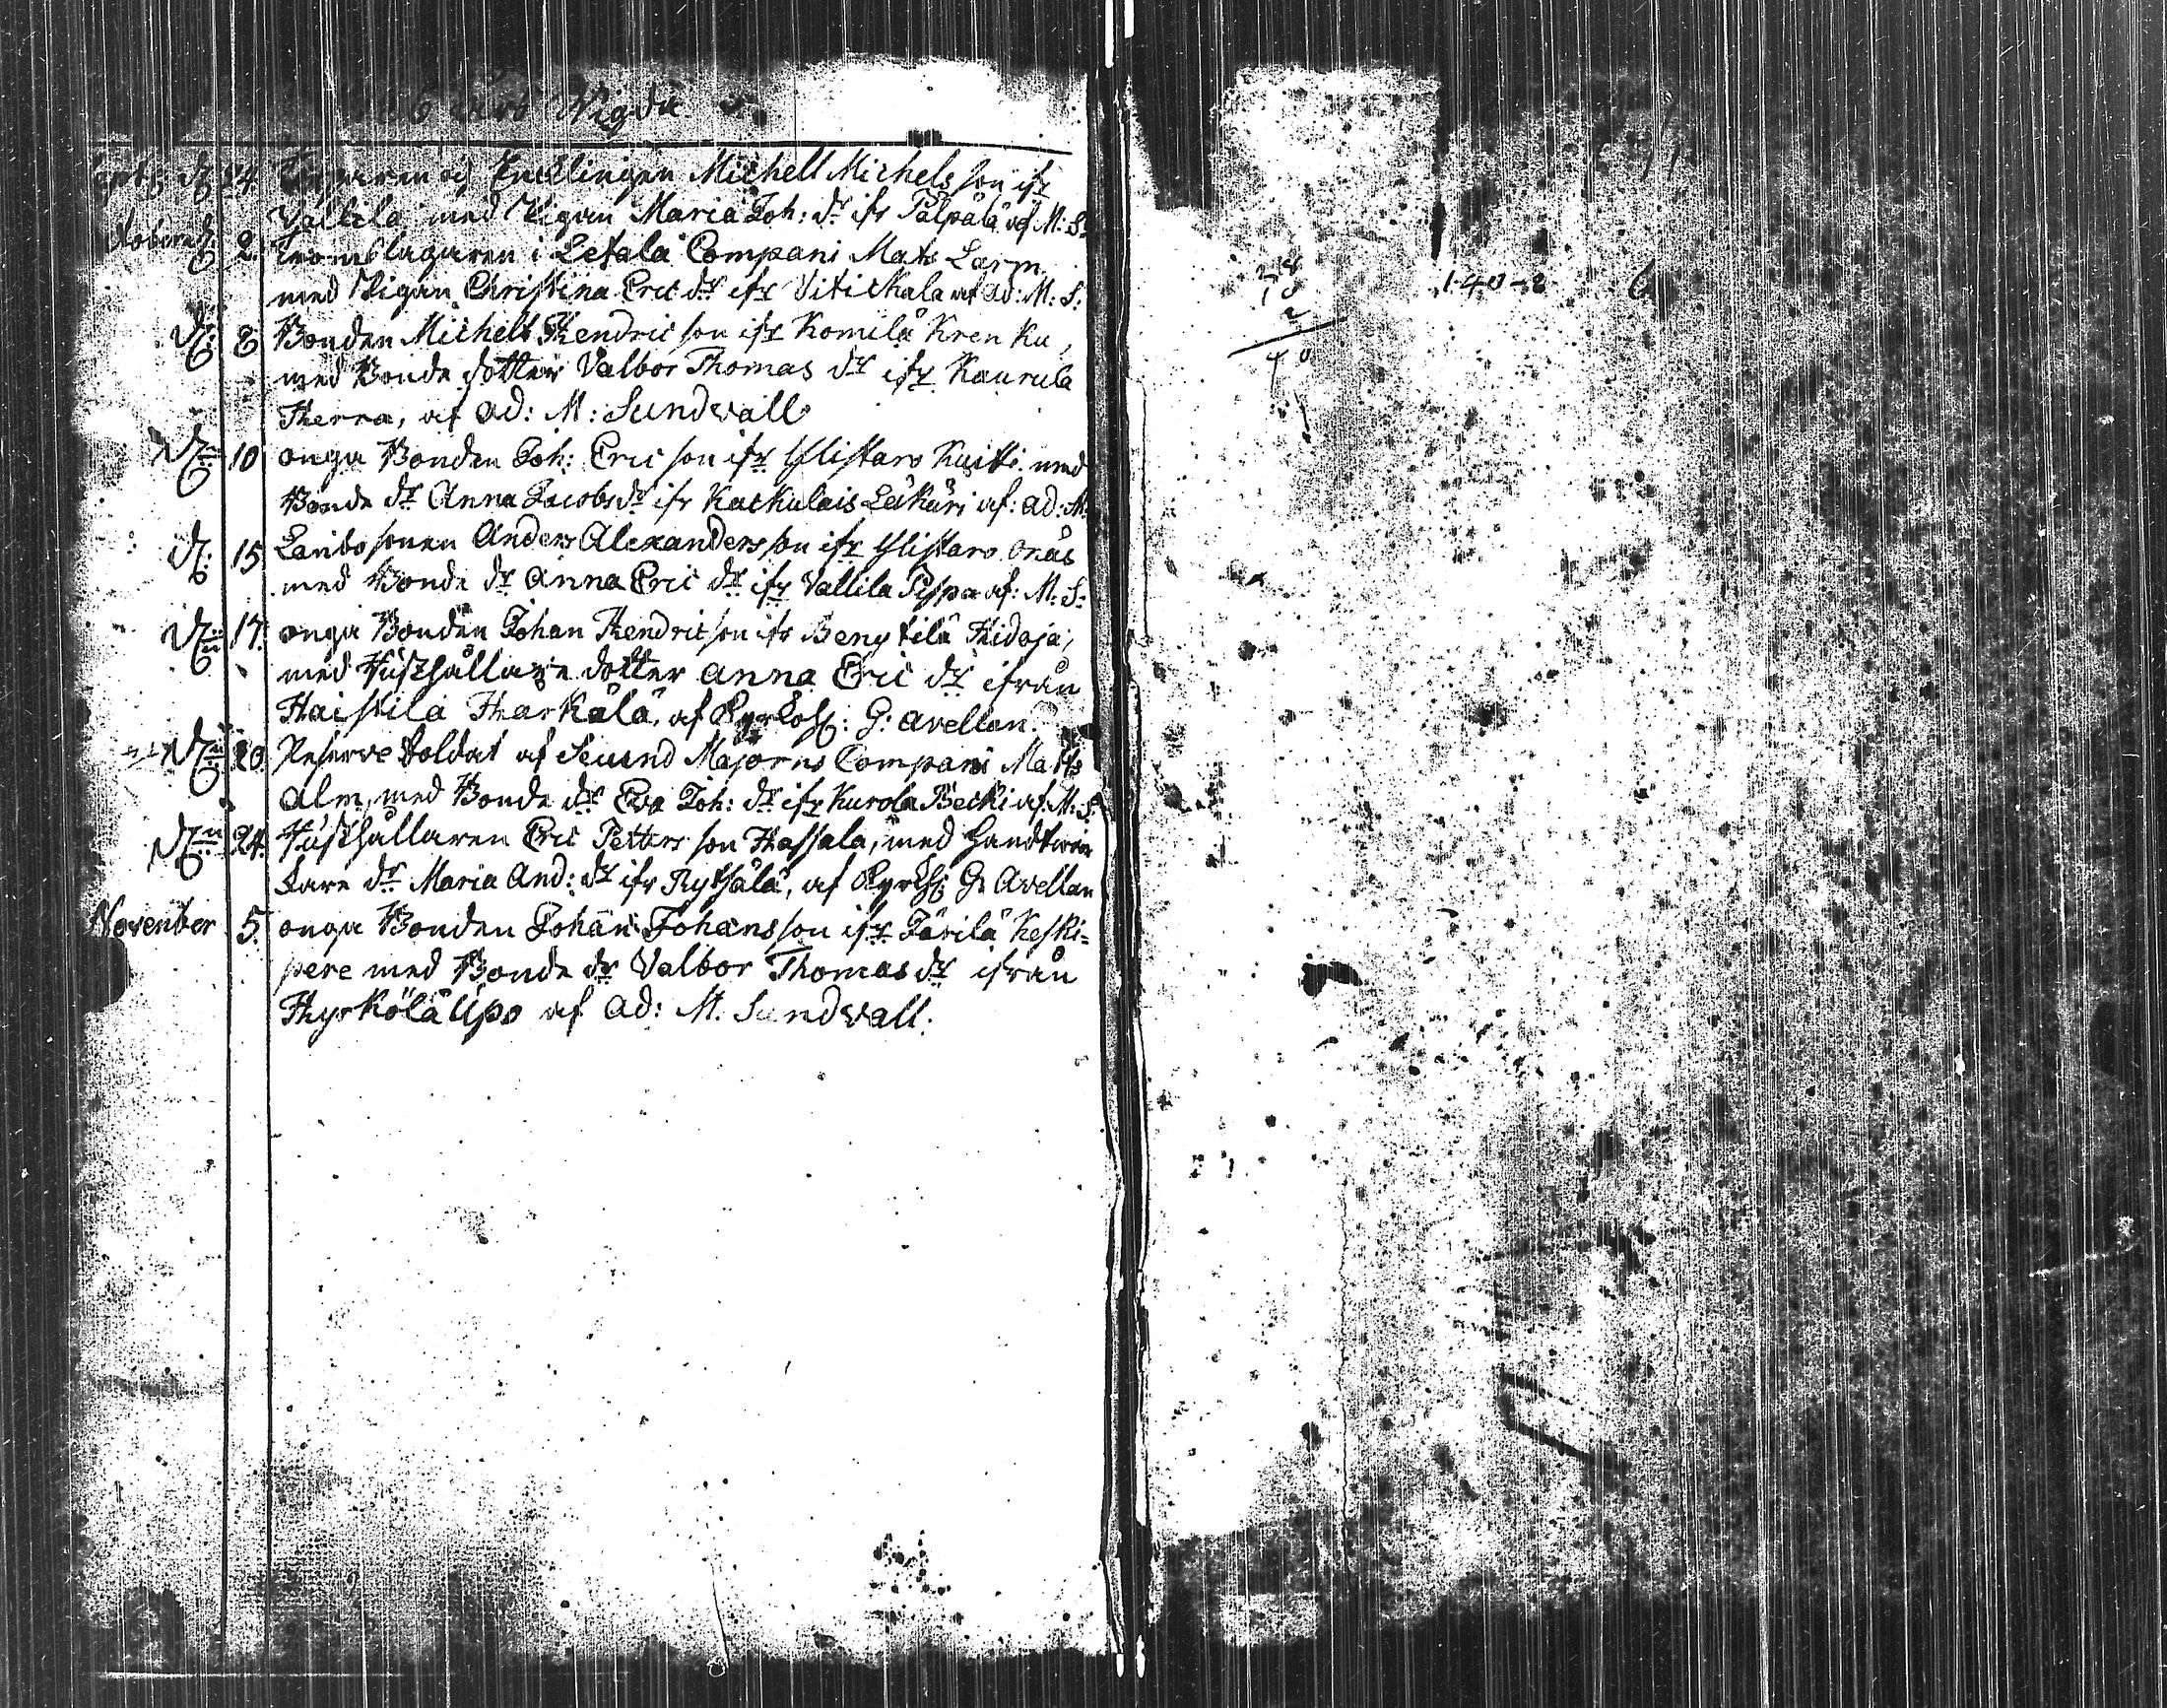 Wigde
24. och Encklingen Michell Michels son ifr
Vallila med Pigan Maria Joh: dr ifr Palpala af M: S:
2. Tromslagaren i Letala Compani Mats Larm
med Pigan Christina Eric dr ifr Vitickala af Ad: M: S:
d: 8 Bonden Michell Hendric son ifr Komila Krenku,
med Bonde dotter Valbor Thomas dr ifr Kaurula
Herra, af Ad: M: Sundvall
d: 10 onga Bonden Joh: Eric son ifr Ylistaro Kuitti med
Bonde dr Anna Jacobs dr ifr Kackulais Leikari af: Ad: M:
d: 15 Lanbosonen Anders Alexanders son ifr Ylistaro Oräs
med Bonde dr Anna Eric dr ifr Vallila Pispa af: M: S:
d: 17. onga Bonden Johan Hendric son ifr Bengtilä Hidoja,
med Rusthållare dotter Anna Eric dr ifrån
Haistila Harkälä, af Kyrkoh: G: Avellan.
d: 20. Reserve Soldat af Secund Majorns Compani Matts
Alm, med Bonde dr Eva Joh: dr ifr Kurola Becki af: M: S:
d: 24. Rusthållaren Eric Petters son Hassala, med handtwär
kare dr Maria And: dr ifr Rytsälä, af Kyrkh: G: Avellan
November 5. onga Bonden Johan Johansson ifr Järilä Keski=
pere med Bonde dr Valbor Thomas dr ifrån
Hyrkölä Upo af Ad: M. Sundvall.
1-40-8